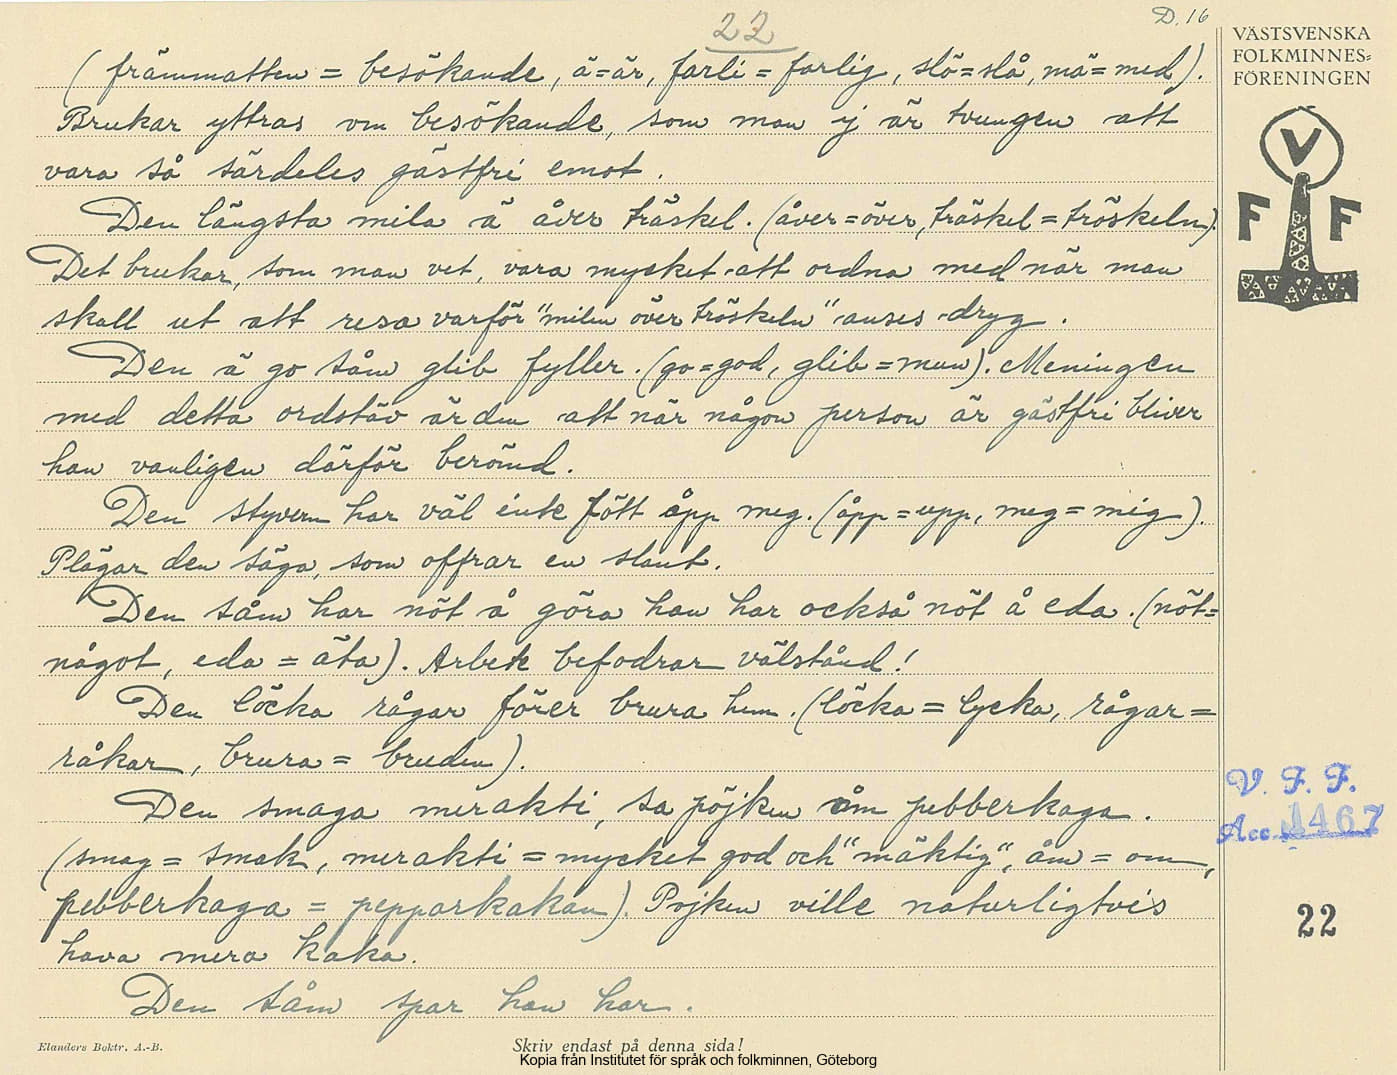 22
D. 16
VÄSTSVENSKA
FOLKMINNES=
FÖRENINGEN
V
F F
(främmatten = besökande, ä=är, farli = farlig, slö=slå, mä=med).
Brukar yttras om besökande, som man ej är tvungen att
vara så särdeles gästfri emot.
Den längsta mila ä åver träskel. (åver=över, träskel = tröskeln).
Det brukar, som man vet, vara mycket att ordna med när man
skall ut att resa varför "milen över tröskeln" anses dryg.
Den ä go såm glib fyller. (go=god, glib=mun). Meningen
med detta ordstäv är den att när någon person är gästfri bliver
han vanligen därför berömd.
Den styvern har väl inte fött åpp meg. (åpp=upp, meg=mig).
Plägar den säga, som offrar en slant.
Den såm har nöt å göra han har också nöt å eda. (nöt=
något, eda = äta). Arbete befodrar välstånd!
Den löcka rågar förer brura hem. (löcka = lycka, rågar=
råkar, brura = bruden).
Den smaga merakti, sa pöjken åm pebberkaga.
(smag = smak, merakti = mycket god och "mäktig", åm = om,
pebberkaga = pepparkakan). Pojken ville naturligtvis
hava mera kaka.
Den såm spar han har.
V. F. F.
Acc. 1467
22
Elanders Boktr. A.-B.
Skriv endast på denna sida!
Kopia från Institutet för språk och folkminnen, Göteborg